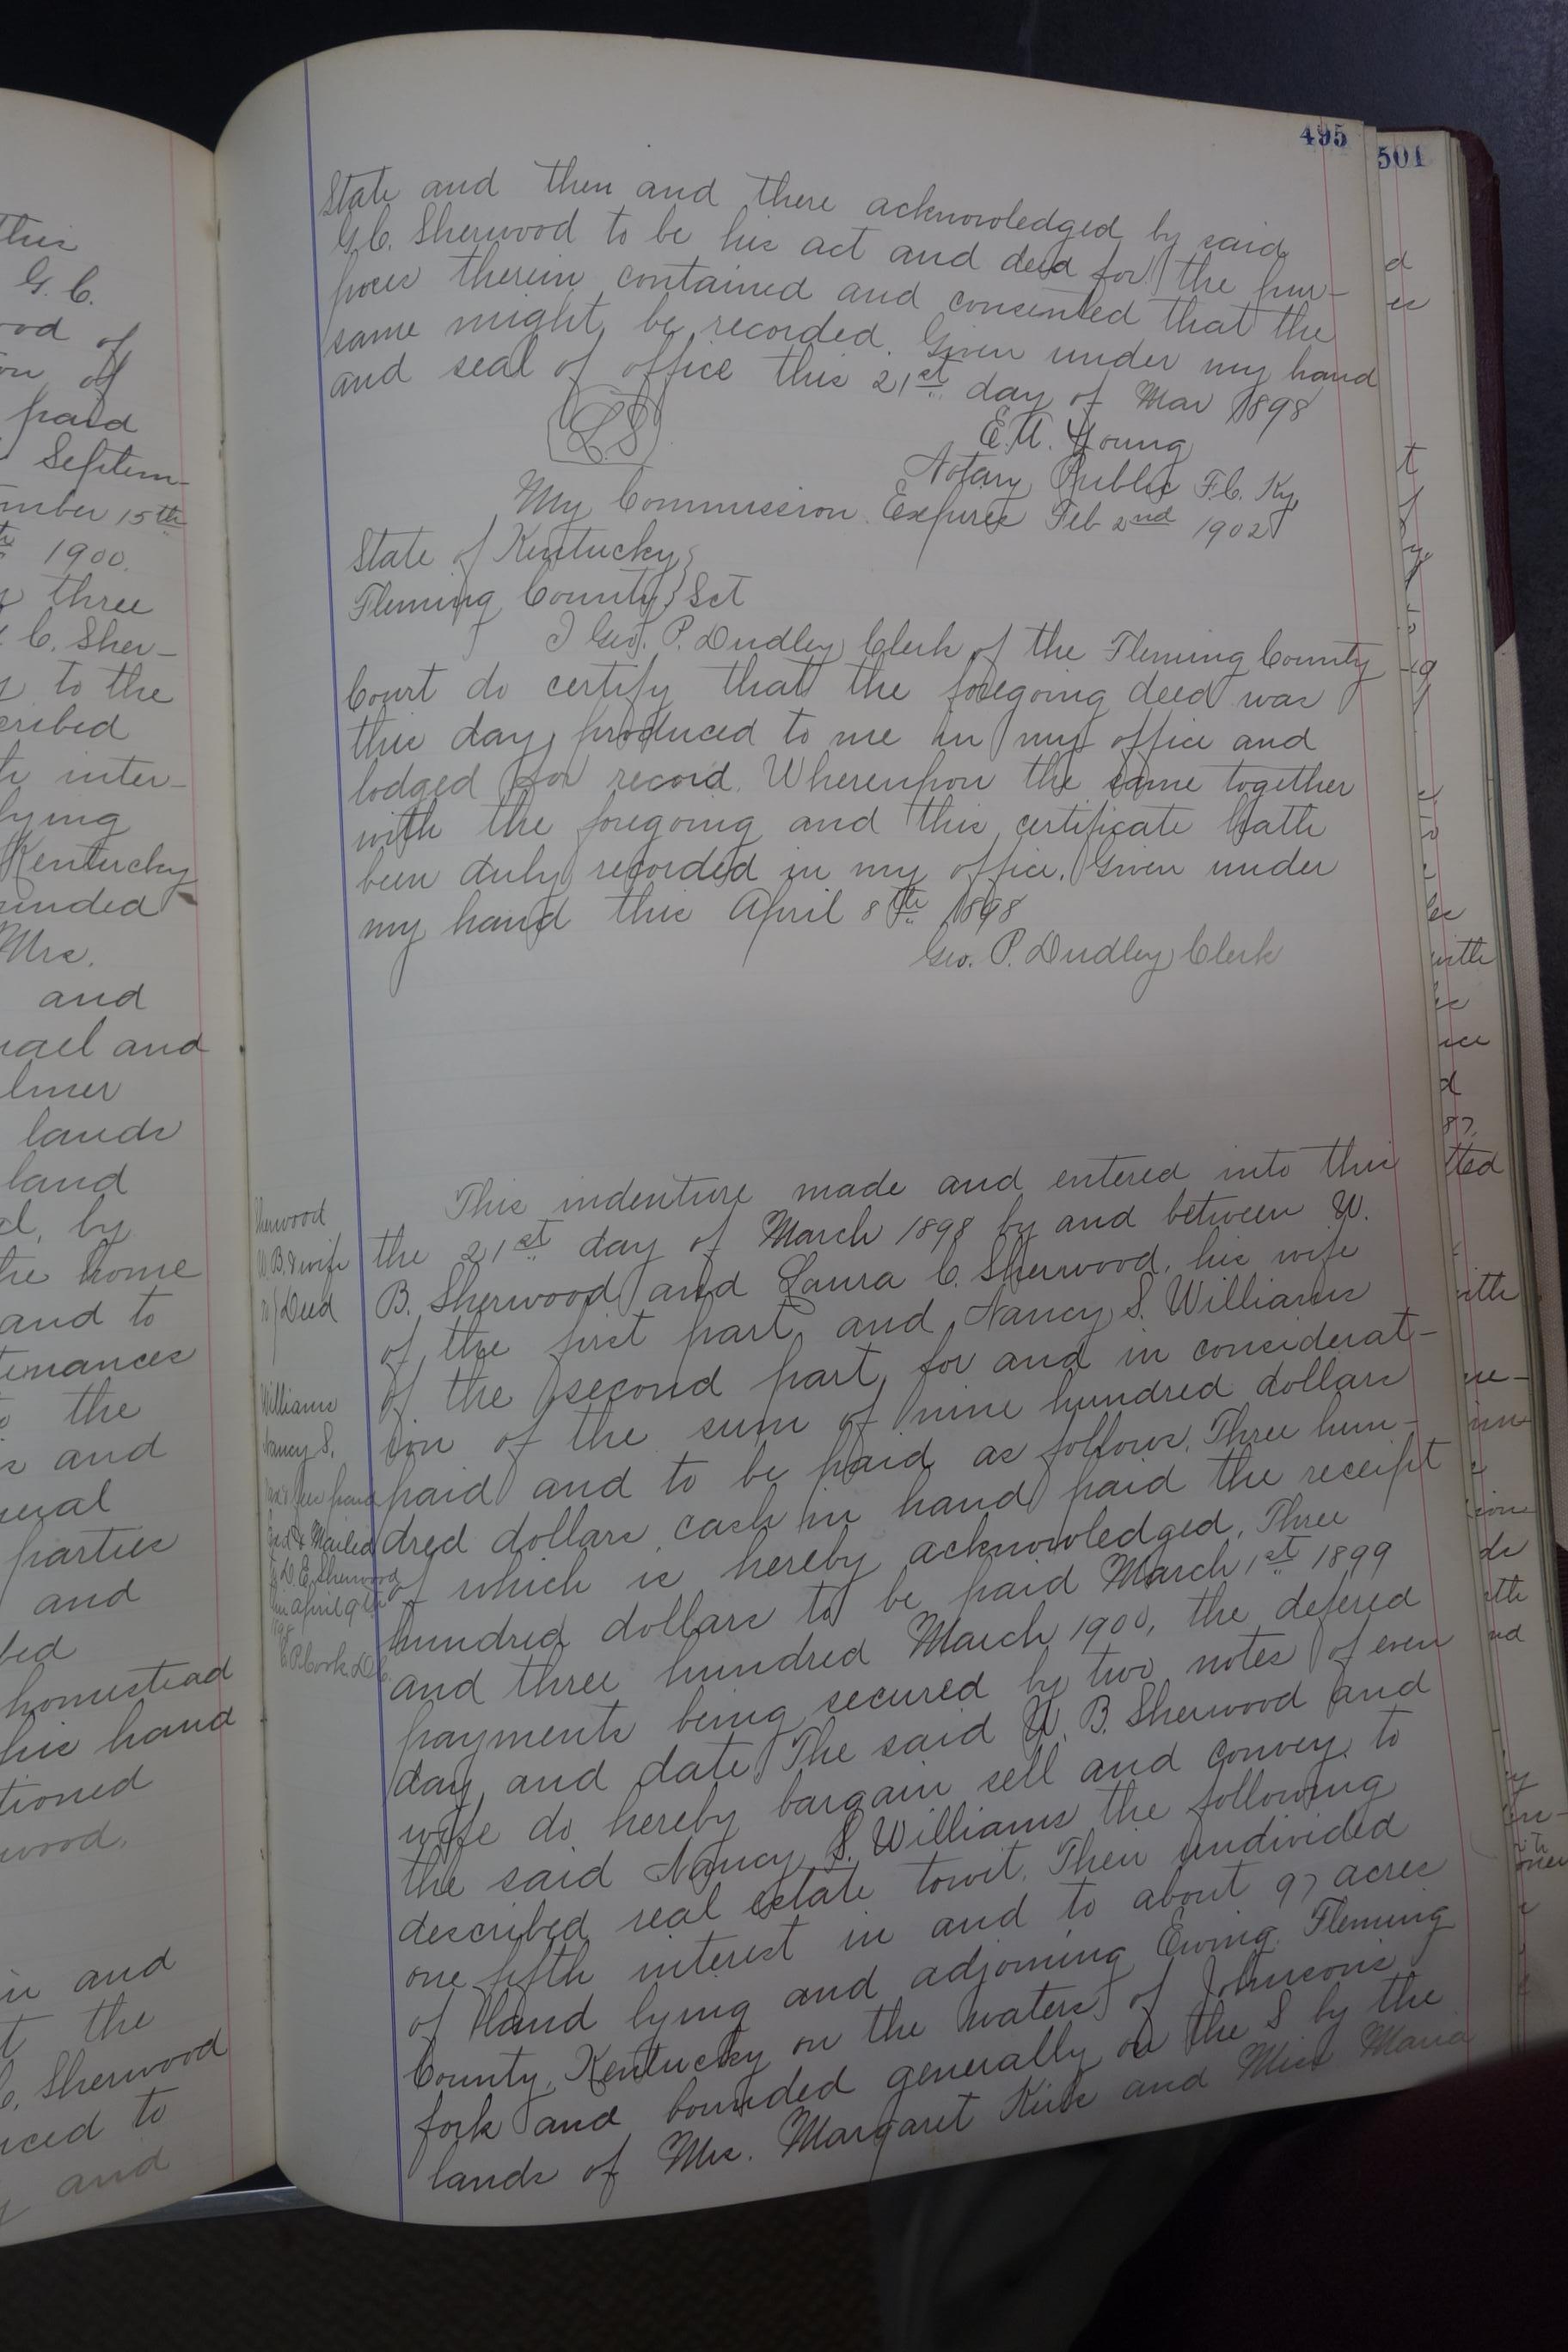 this
G. C.
of
of
paid
Septem-
15th
1900.
three
C. Sher-
to the
inter-
lying
Kentucky
Mrs.
and
and
lands
land
by
home
and to
the
and
parties
and
homestead
his hand
wood,
and
the
C. Sherwood
to
and
495
State and then and there acknowledged by said
G. C. Sherwood to be his act and deed for the pur-
poses therein contained and consented that the
same might be recorded. Given under my hand
and seal of office this 21st day of Mar 1898
L.S.
E. A. Young
Notary Public F.C. Ky
My Commission Expires Feb 2nd 1902
State of Kentucky
Fleming County } Sct
I Geo. P. Dudley Clerk of the Fleming County
Court do certify that the foregoing deed was
this day produced to me in my office and
lodged for record. Whereupon the same together
with the foregoing and this certificate hath
been duly recorded in my office. Given under
my hand this April 8th 1898
Geo. P. Dudley Clerk
Sherwood
W. B. & wife
Deed
Williams
Nancy S.
& Mailed
D. E. Sherwood
April 9
This indenture made and entered into this
the 21st day of March 1898 by and between W.
B. Sherwood and Laura C. Sherwood, his wife
of the first part, and Nancy S. Williams
of the second part, for and in considerat-
ion of the sum of nine hundred dollars
paid and to be paid as follows. Three hun-
dred dollars cash in hand paid the receipt
of which is hereby acknowledged. Three
hundred dollars to be paid March 1st 1899
and three hundred March 1900, the defered
payments being secured by two notes of even
day and date. The said W. B. Sherwood and
wife do hereby bargain sell and convey to
the said Nancy S. Williams the following
described real estate towit. Their undivided
one fifth interest in and to about 97 acres
of land lying and adjoining Ewing Fleming
County, Kentucky on the waters of Johnsons
fork and bounded generally on the S by the
lands of Mrs. Margaret Kirk and Miss Maria
501